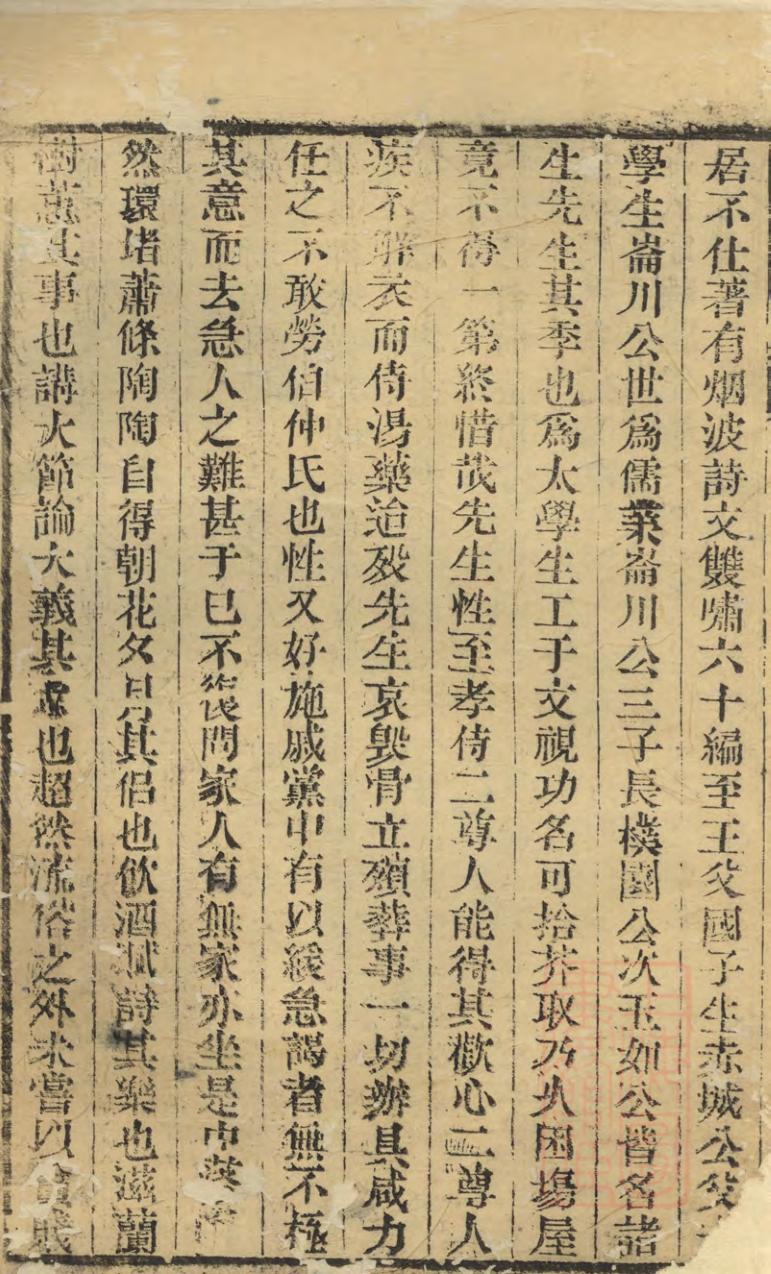 居不仕著有烟波詩文雙嘯六十編至王父國子生赤城公父
學生崙川公世爲儒業崙川公三子長樸園公次玉如公皆名諸
生先生其季也爲太學生工于文視功名可拾芥取乃久困場屋
竟不得一第終惜哉先生性至孝侍二尊人能得其歡心二尊人
疾不觧衣而侍湯藥迨歿先生哀毀骨立殯葬事一切辦具咸力
任之不敢勞伯仲氏也性又好施戚黨中有以緩急謁者無不極
其意而去急人之難甚于已不復問家人有無家亦坐是中落
然環堵蕭條陶陶自得朝花夕月其侶也飲酒賦詩其樂也滋蘭
樹蕙其事也講大節論大義其志也超然流俗之外未嘗以貧賤